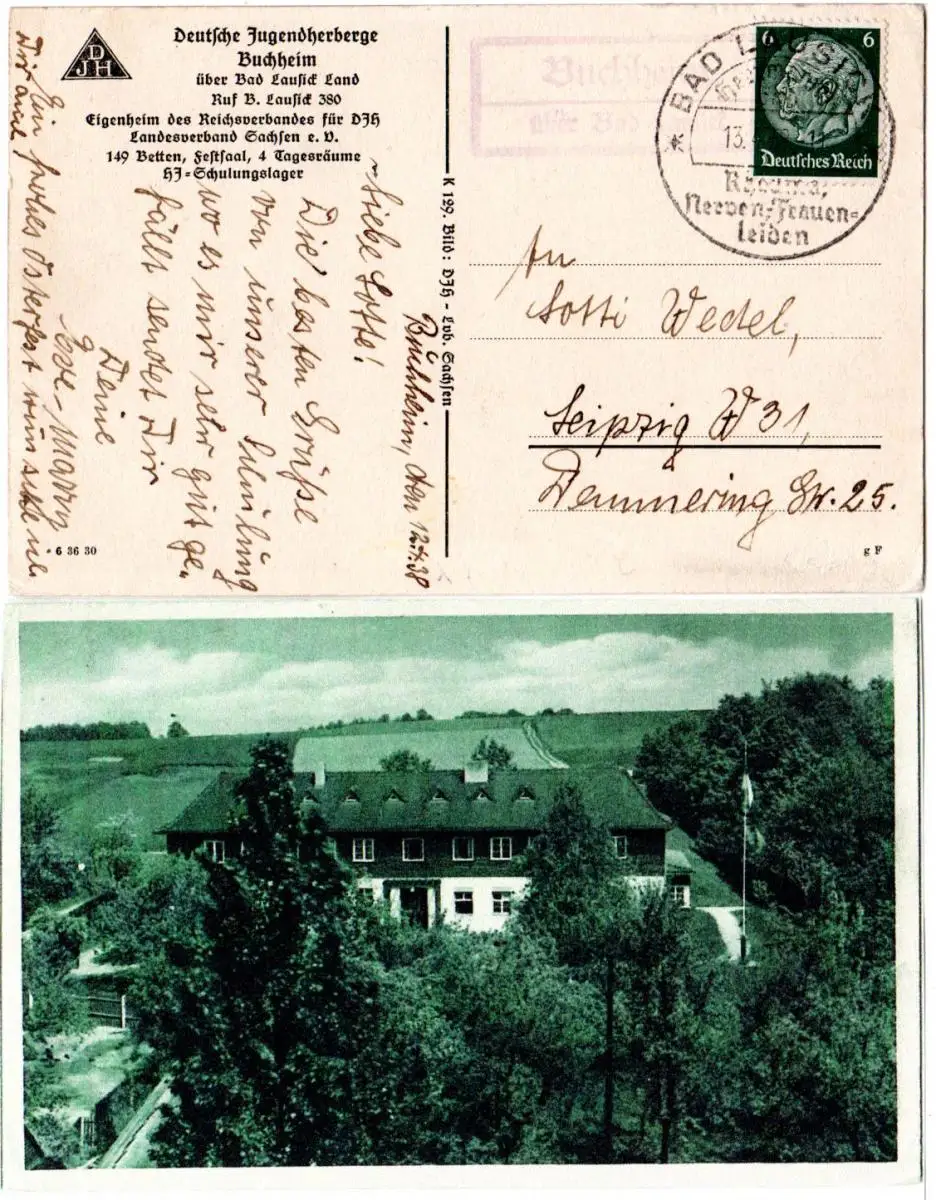 DJH
Deutsche Jugendherberge
Buchheim
über Bad Lausick Land
Ruf B. Lausick 380
Eigenheim des Reichsverbandes für DJH
Landesverband Sachsen e. V.
149 Betten, Festsaal, 4 Tagesräume
HJ=Schulungslager
Buchheim, den 12.4.38
Liebe Lotte!
Die besten Grüße
von unserer Schulung
wo es mir sehr gut ge-
fällt sendet Dir
Deine
-Marry
Ein frohes Osterfest wünsche ich
Dir auch
- 6 36 30
K 129. Bild: DJH - Lvb. Sachsen
Buchheim
über Bad Lausick
* BAD LAUSICK
13.
Rheuma,
Nerven=Frauen=
leiden
6 6
Deutsches Reich
An
Lotti Wedel,
Leipzig W 31,
Demmering Str. 25.
g F